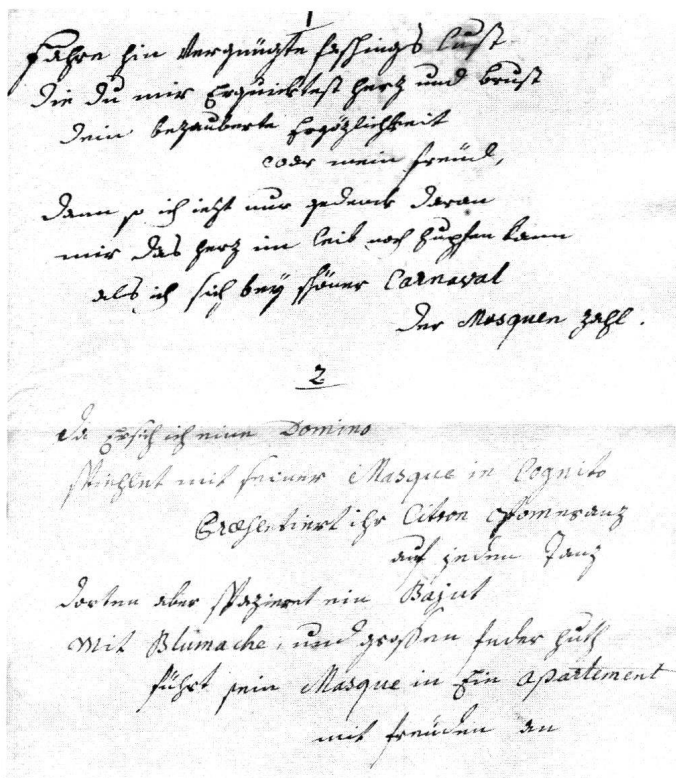 1
Fahre hin Vergnügte faschings lust
die du mir Erquiktest hertz und brust
dein bezauberte Ergözlichkeit
oder mein freüd,
dann so ich iezt nur gedenck daran
mir das hertz im leib noch hupfen kann
als ich sich bey schöner Carnaval
der Masquen zahl.
2
da Ersich ich eine Domino
spihlet mit seiner Masque in Cognito
Præsentiert ihr Citron Pomeranz
auf jeden Tanz
dorten aber spazieret ein Bajut
Mit Blumache, und großen feder huth
führt sein Masque in Ein apartement
mit freüden an